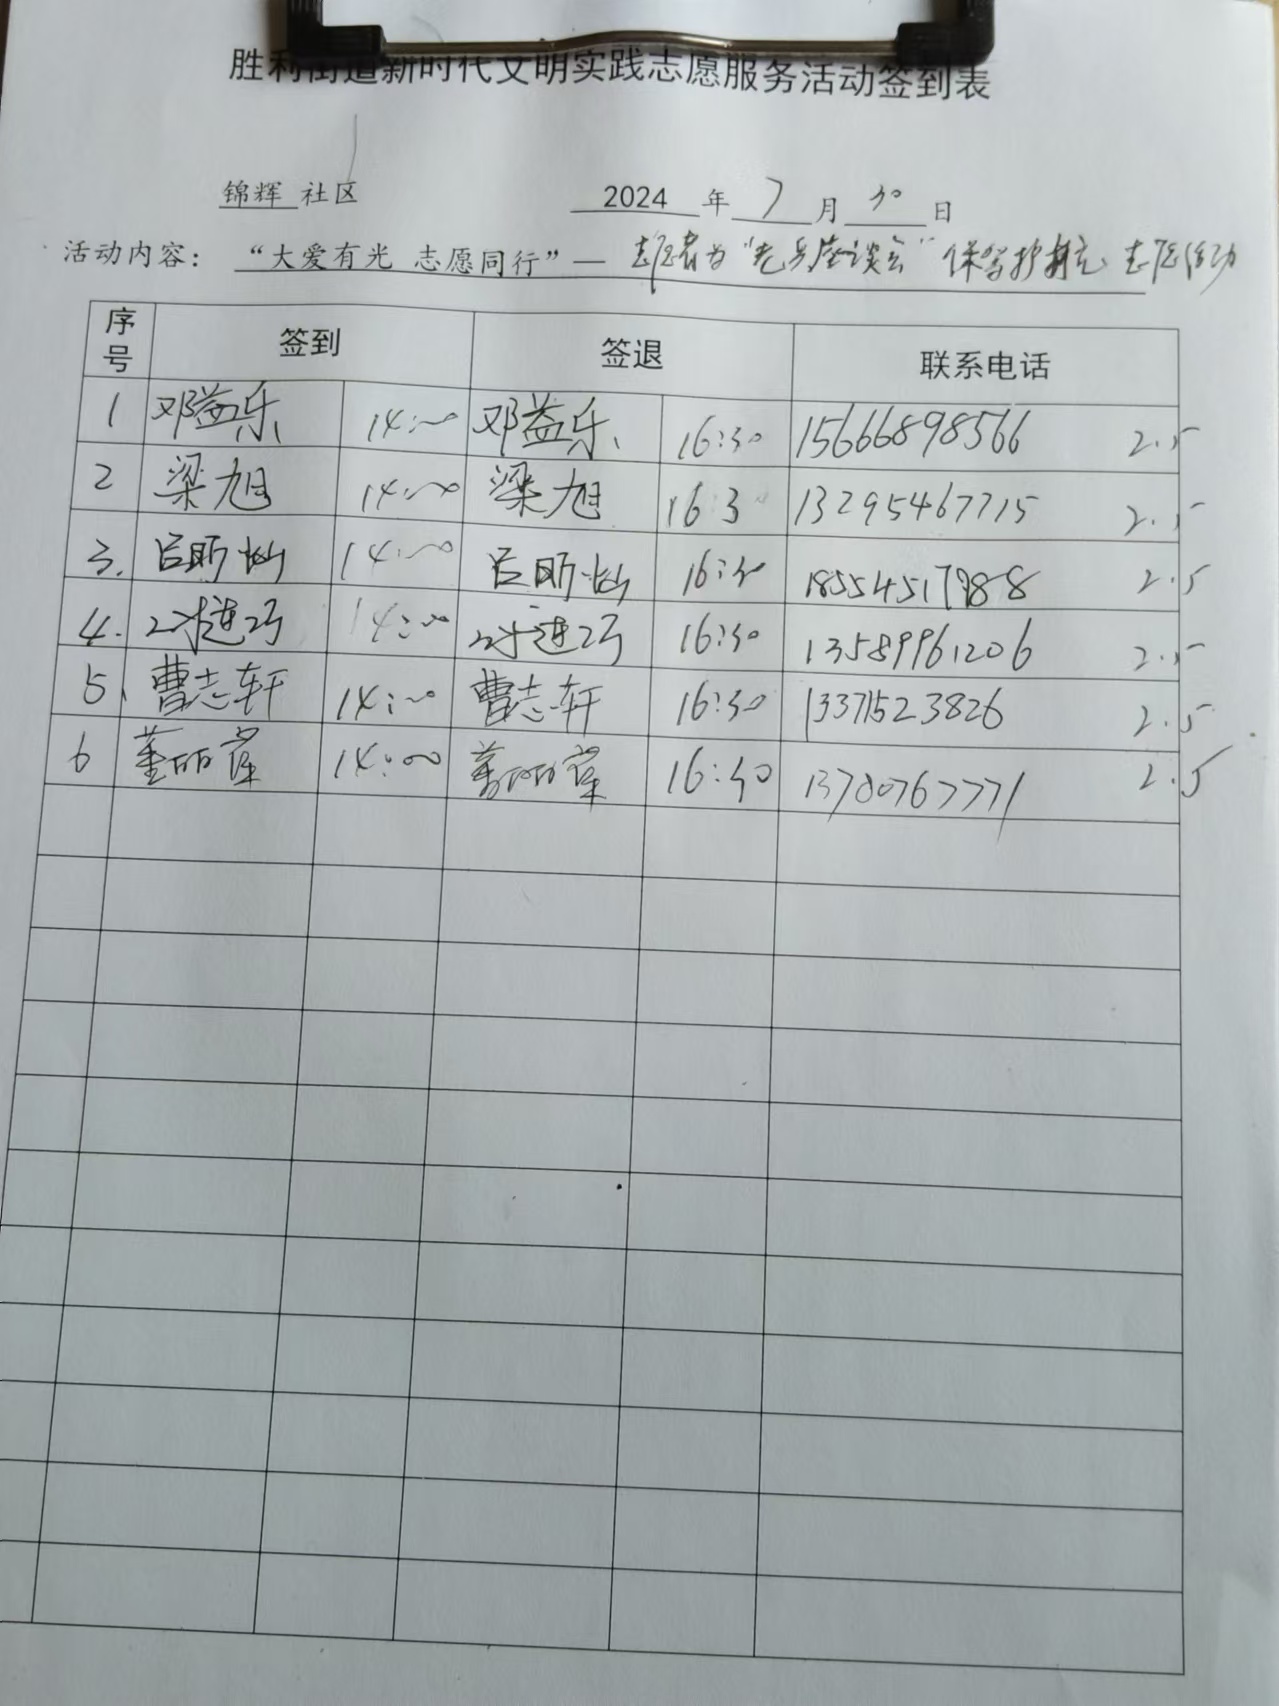 胜利街道新时代文明实践志愿服务活动签到表
锦辉 社区 2024 年 7 月 30 日
活动内容： “大爱有光 志愿同行”— 志愿者为“老兵座谈会”保驾护航 志愿活动
序号 签到 签退 联系电话
1 邓益乐 14:00 邓益乐 16:30 15666898566 2.5
2 梁旭 14:00 梁旭 16:30 13295467715 2.5
3. 14:00 16:30 18554517988 2.5
4. 14:00 16:30 13589961206 2.5
5、 曹志轩 14:00 曹志轩 16:30 13371523826 2.5
6 14:00 16:30 13780767771 2.5